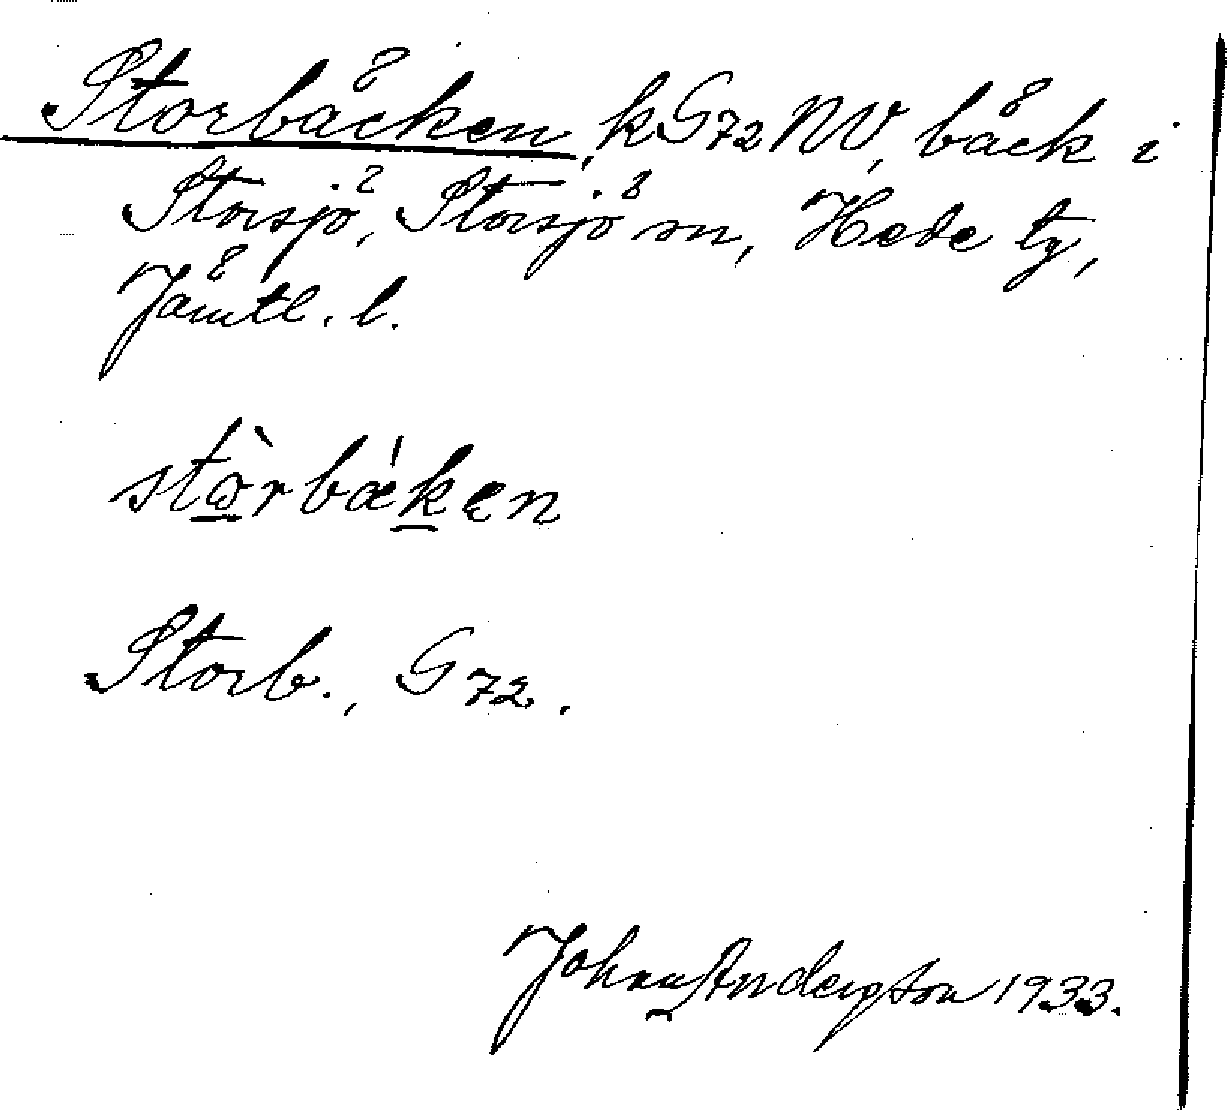 Storbäcken, k G72 NV, bäck i
Storsjö, Storsjö sn, Hede tg,
Jämtl. l.
stòrbækæn
Storb., G 72.
Johan Anderson 1933.